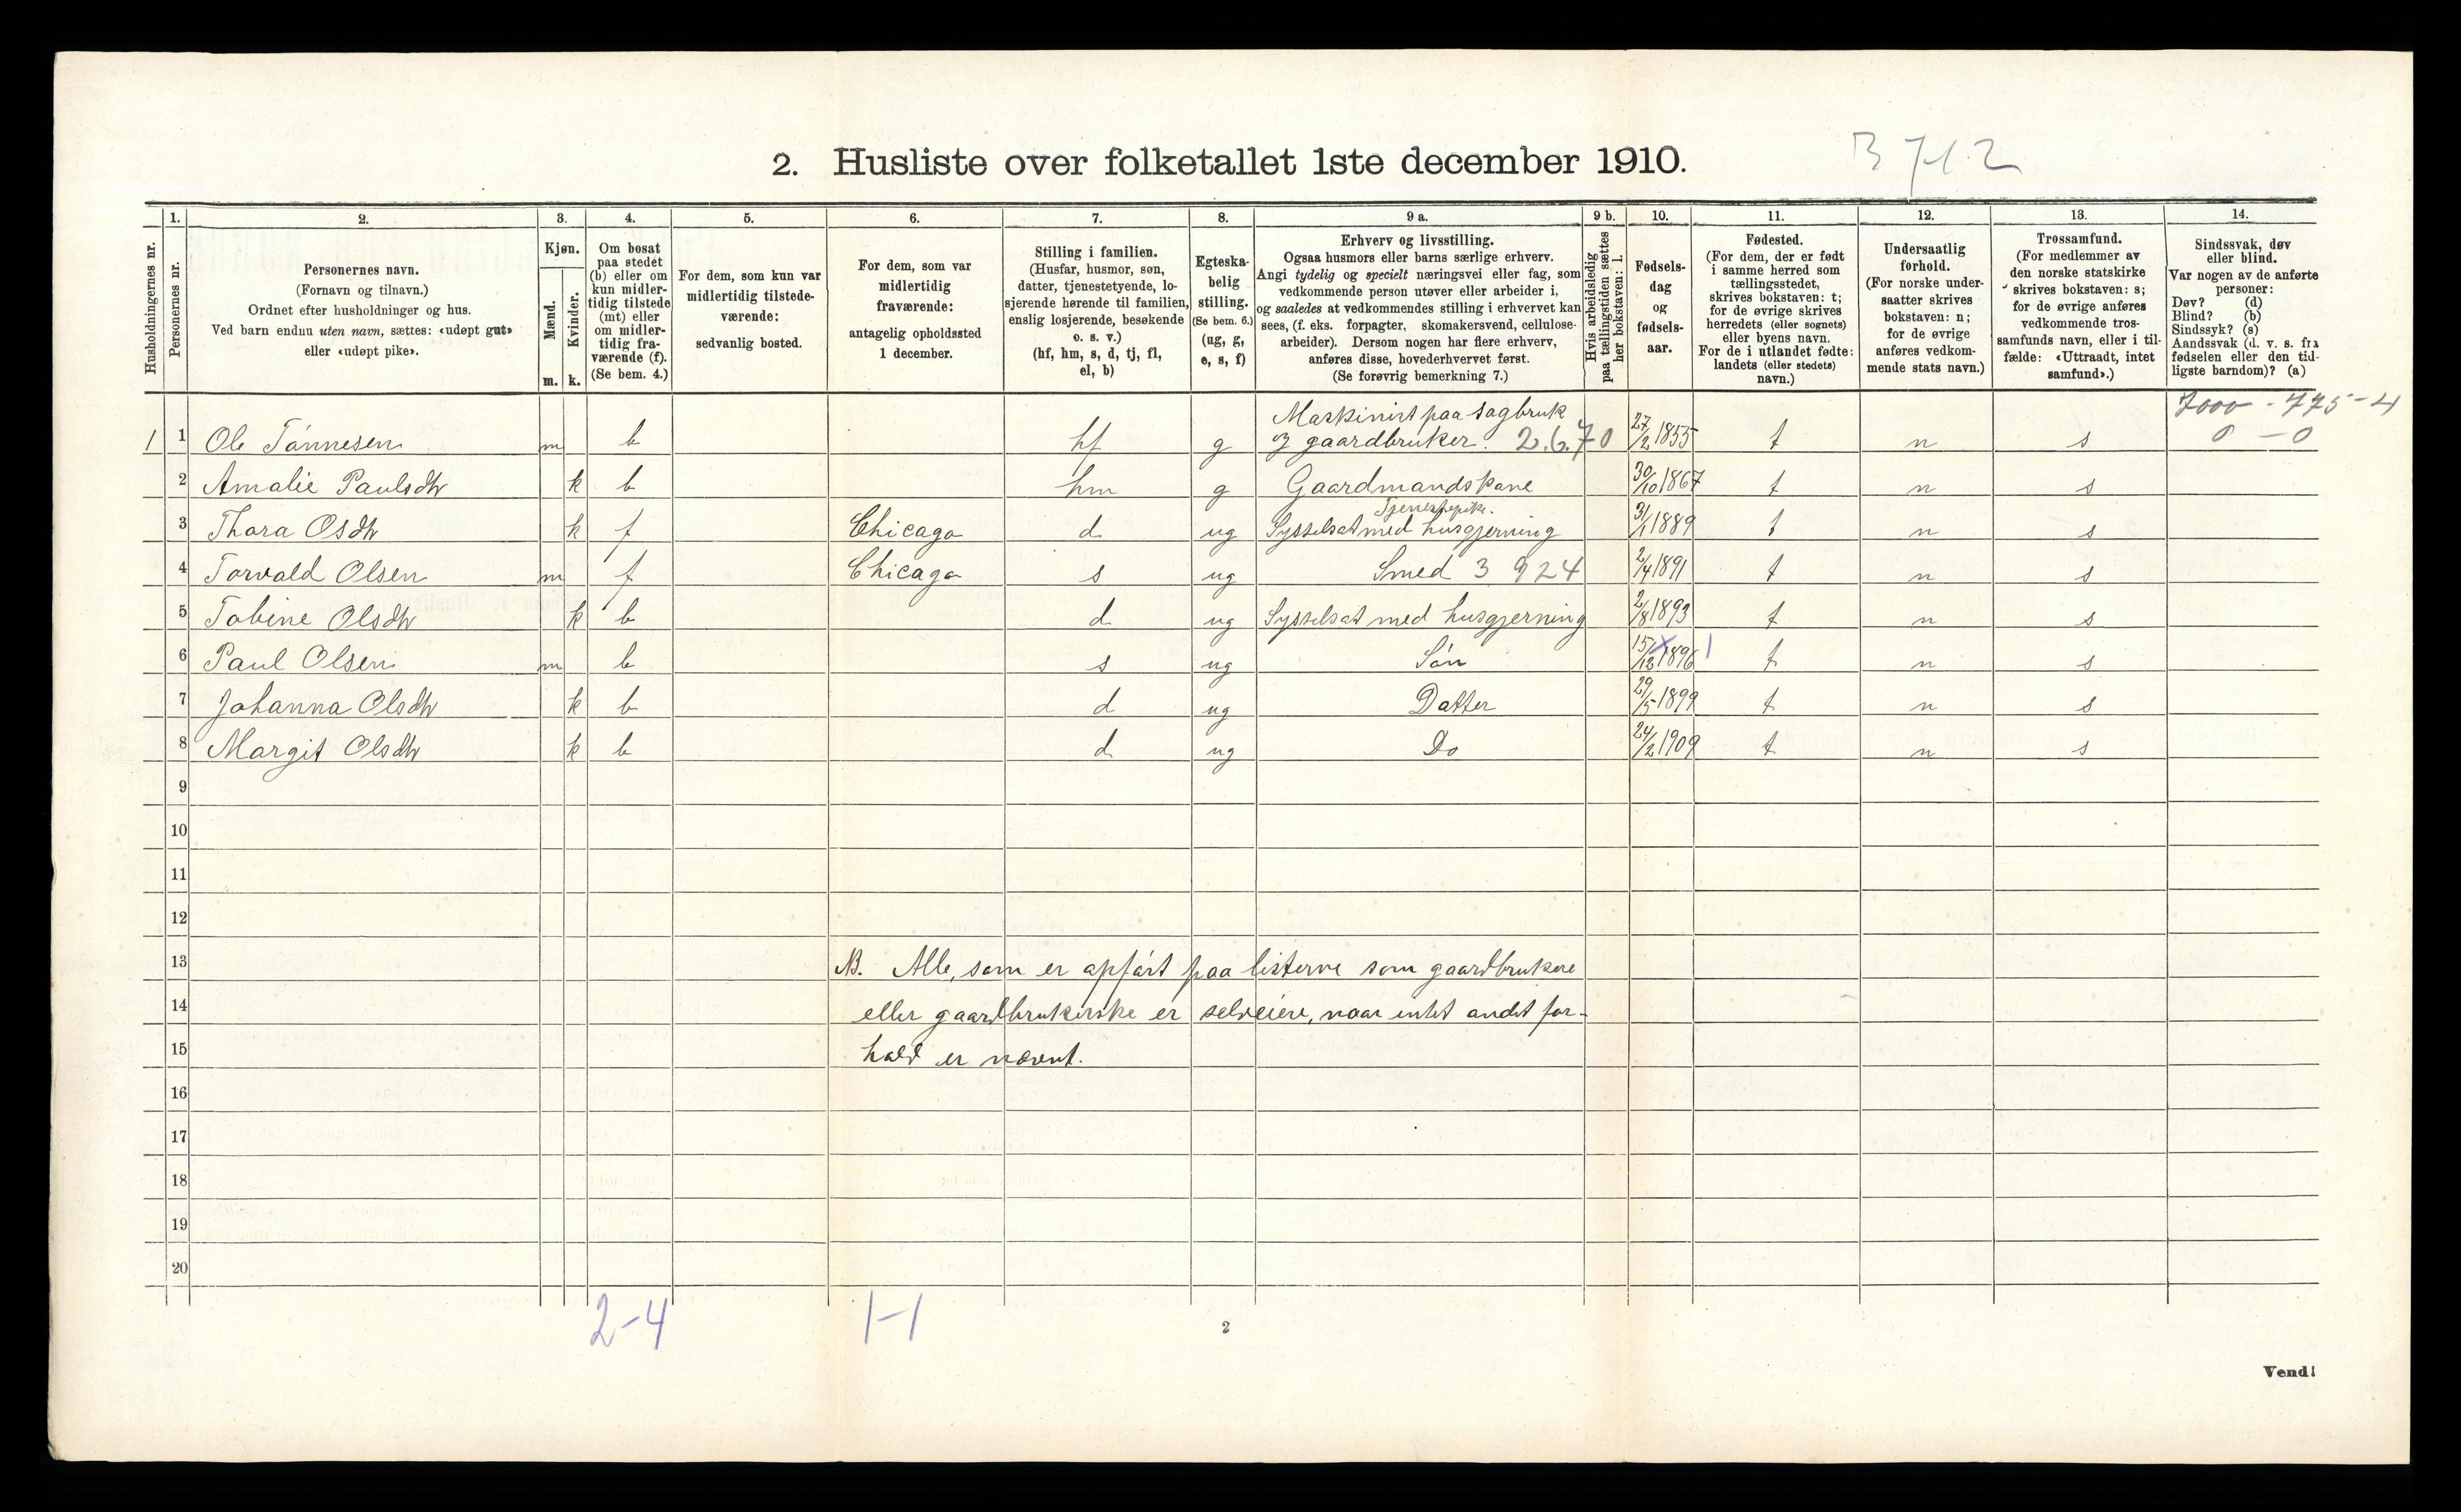 2. Husliste over folketallet 1ste december 1910.
B 7-12
Husholdningernes nr.
1.
Personernes nr.
2.
Personernes navn.
(Fornavn og tilnavn.)
Ordnet efter husholdninger og hus.
Ved barn endnu uten navn, sættes: «udøpt gut»
eller «udøpt pike».
3.
Kjøn.
Mænd.
Kvinder.
m. k.
4.
Om bosat
paa stedet
(b) eller om
kun midler-
tidig tilstede
(mt) eller
om midler-
tidig fra-
værende (f).
(Se bem. 4.)
5.
For dem, som kun var
midlertidig tilstede-
værende:
sedvanlig bosted.
6.
For dem, som var
midlertidig
fraværende:
antagelig opholdssted
1 december.
7.
Stilling i familien.
(Husfar, husmor, søn,
datter, tjenestetyende, lo-
sjerende hørende til familien,
enslig losjerende, besøkende
o. s. v.)
(hf, hm, s, d, tj, fl,
el, b)
8.
Egteska-
belig
stilling.
(Se bem. 6.)
(ug, g,
e, s, f)
9 a.
Erhverv og livsstilling.
Ogsaa husmors eller barns særlige erhverv.
Angi tydelig og specielt næringsvei eller fag, som
vedkommende person utøver eller arbeider i,
og saaledes at vedkommendes stilling i erhvervet kan
sees, (f. eks. forpagter, skomakersvend, cellulose-
arbeider). Dersom nogen har flere erhverv,
anføres disse, hovederhvervet først.
(Se forøvrig bemerkning 7.)
9 b.
Hvis arbeidsledig
paa tællingstiden sættes
her bokstaven: l.
10.
Fødsels-
dag
og
fødsels-
aar.
11.
Fødested.
(For dem, der er født
i samme herred som
tællingsstedet,
skrives bokstaven: t;
for de øvrige skrives
herredets (eller sognets)
eller byens navn.
For de i utlandet fødte:
landets (eller stedets)
navn.)
12.
Undersaatlig
forhold.
(For norske under-
saatter skrives
bokstaven: n;
for de øvrige
anføres vedkom-
mende stats navn.)
13.
Trossamfund.
(For medlemmer av
den norske statskirke
skrives bokstaven: s;
for de øvrige anføres
vedkommende tros-
samfunds navn, eller i til-
fælde: «Uttraadt, intet
samfund».)
14.
Sindssvak, døv
eller blind.
Var nogen av de anførte
personer:
Døv? (d)
Blind? (b)
Sindssyk? (s)
Aandssvak (d. v. s. fra
fødselen eller den tid-
ligste barndom)? (a)
7000 - 775 - 4
0 - 0
1 1 Ole Tönnesen m b hf g Maskinist paa sagbruk og gaardbruker. 2.6.70 27/2 1855 t n s
2 Amalie Paulsdtr k b hm g Gaardmandskone 30/10 1867 t n s
3 Thora Osdtr k f Chicago d ug Sysselsat med husgjerning Tjenestepike. 31/1 1889 t n s
4 Torvald Olsen m f Chicago s ug Smed 3 924 2/4 1891 t n s
5 Tobine Olsdtr k b d ug Sysselsat med husgjerning 2/8 1893 t n s
6 Paul Olsen m b s ug Sön 15/12 1896 1 t n s
7 Johanna Olsdtr k b d ug Datter 29/5 1899 t n s
8 Margit Olsdtr k b d ug Do 24/2 1909 t n s
9
10
11
12
13 NB. Alle, som er opfört paa listerne som gaardbrukere
14 eller gaardbrukerske er selveiere, naar intet andet for-
15 hold er nævnt.
16
17
18
19
20
2-4 1-1
2
Vend!